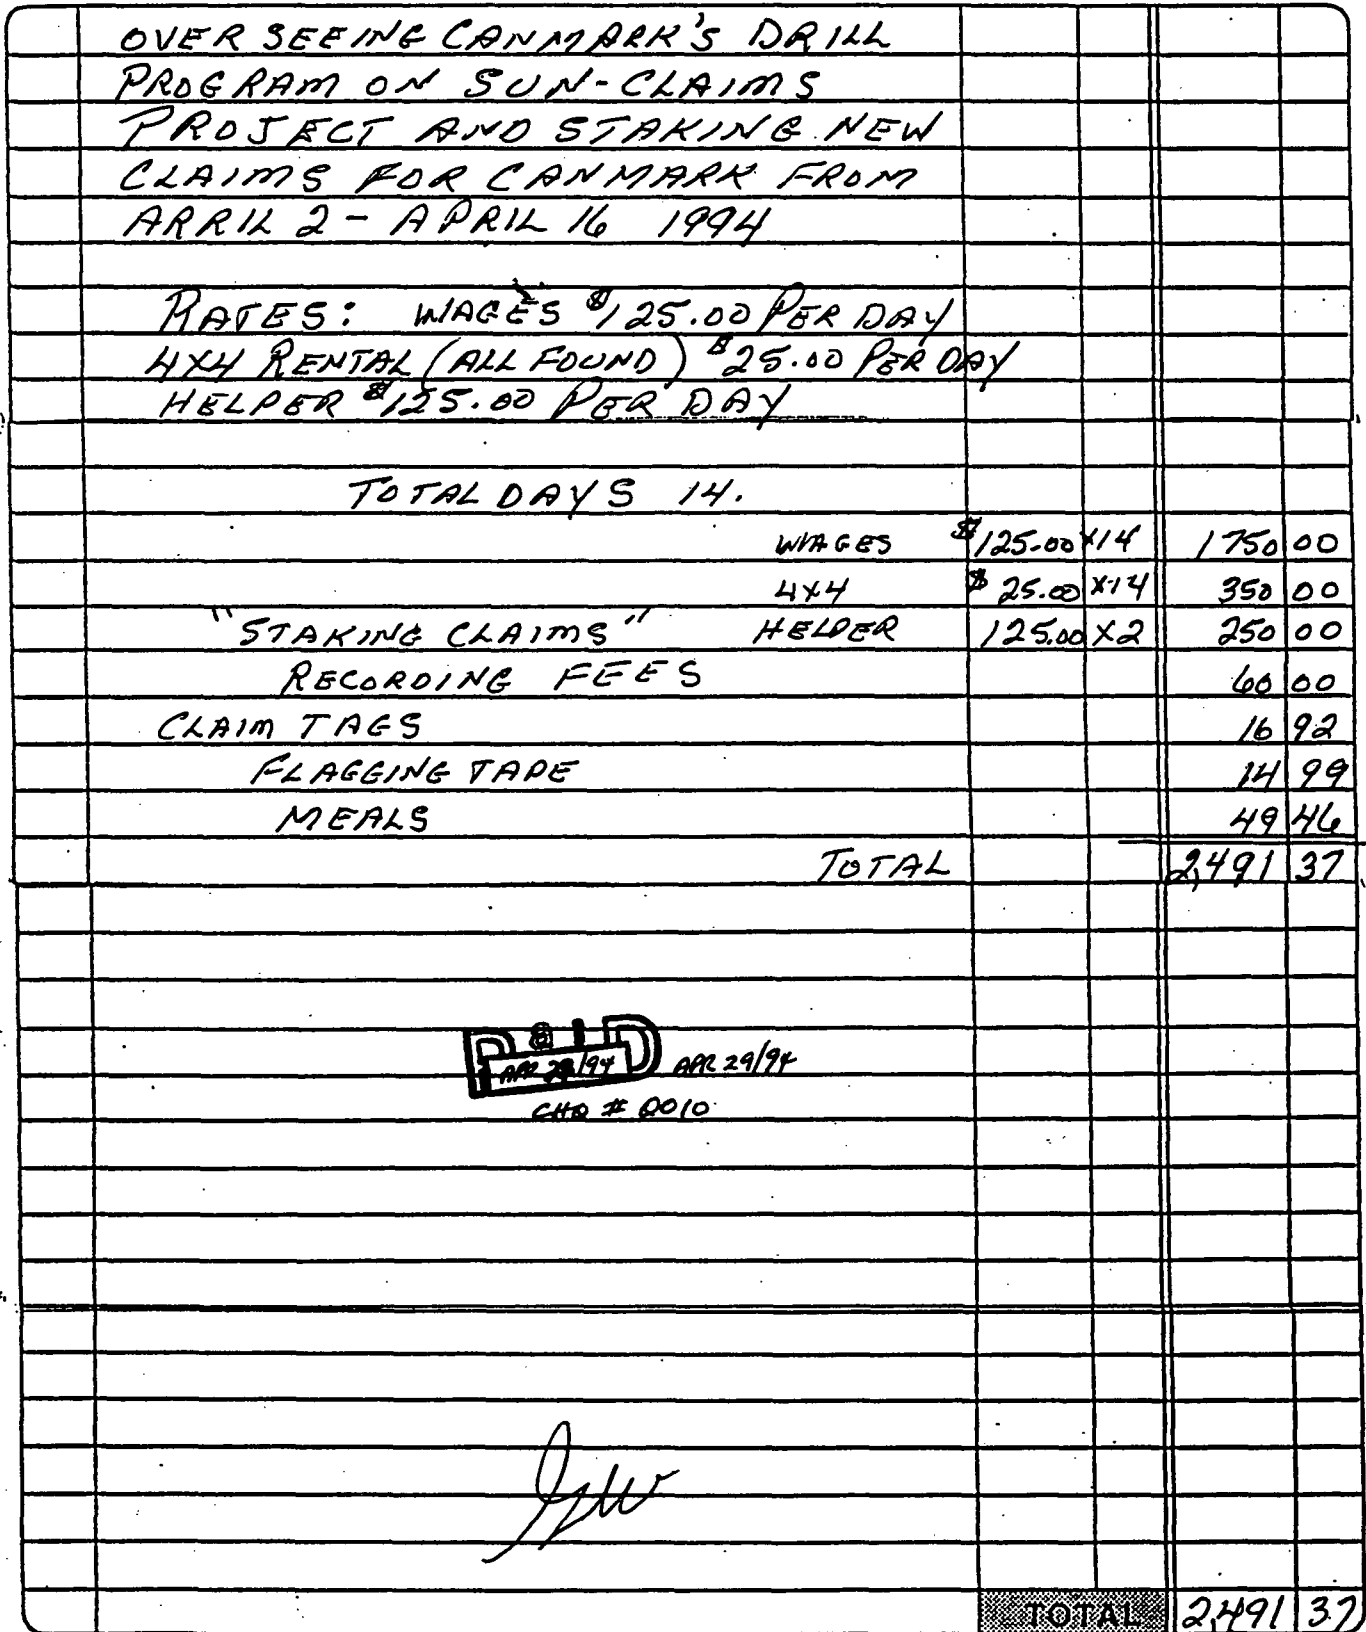 OVER SEEING CANMARK'S DRILL
PROGRAM ON SUN-CLAIMS
PROJECT AND STAKING NEW
CLAIMS FOR CANMARK FROM
ARRIL 2 - APRIL 16 1994
RATES: WAGES $125.00 PER DAY
4X4 RENTAL (ALL FOUND) $25.00 PER DAY
HELPER $125.00 PER DAY
TOTAL DAYS 14.
WAGES $125.00 X14 1750 00
4X4 $25.00 X14 350 00
"STAKING CLAIMS" HELPER 125.00 X2 250 00
RECORDING FEES 60 00
CLAIM TAGS 16 92
FLAGGING TAPE 14 99
MEALS 49 46
TOTAL 2,491 37
PaID
APR 29/94
CHQ # 0010
TOTAL 2,491 37